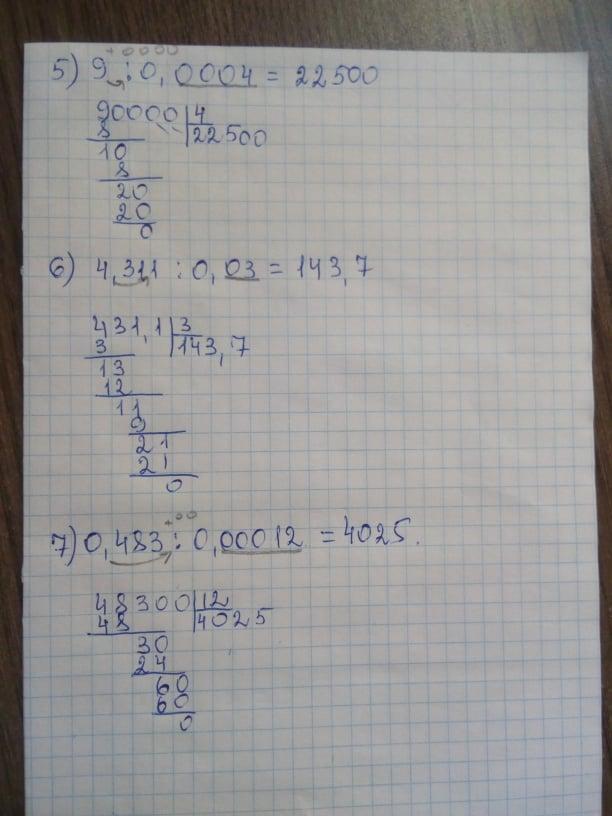 +0000
5) 9 : 0,0004 = 22500
90000 4
8 22500
10
8
20
20
0
6) 4,311 : 0,03 = 143,7
431,1 3
3 143,7
13
12
11
9
21
21
0
+00
7) 0,483 : 0,00012 = 4025.
48300 12
48 4025
30
24
60
60
0